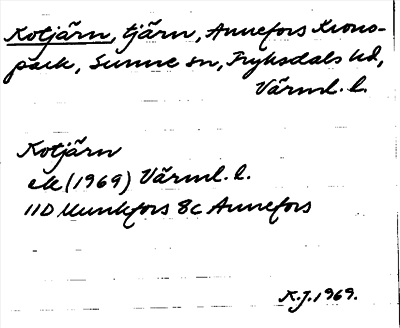 Kotjärn, tjärn, Annefors Krono-
park, Sunne sn, Fryksdals hd,
Värml. l.
Kotjärn
ek (1969) Värml. l.
11D Munkfors 8c Annefors
K.J. 1969.